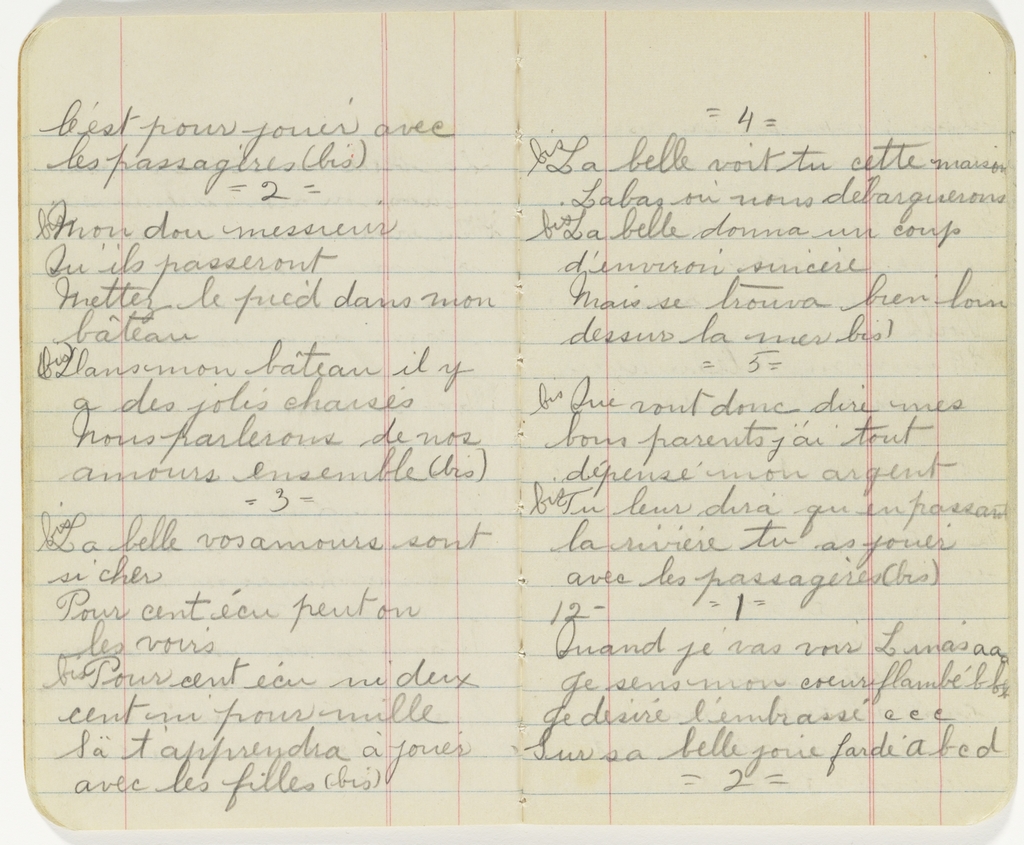 C'est pour jouér avec
les passagères (bis)
= 2 =
bis Mon dou messieur
Qu'ils passeront
Mettez le pied dans mon
bâteau
(bis) Dans mon bâteau il y
a des jolis chaisés
Nous parlerons de nos
amours ensemble (bis)
= 3 =
bis La belle vos amours sont
si cher
Pour cent écu peut on
les voirs
bis Pour cent écu ni deux
cent ni pour mille
Sä t'apprendra à jouér
avec les filles (bis)
= 4 =
bis La belle voit tu cette maison
Labas où nous débarquerons
bis La belle donna un coup
d'environ sincère
Mais se trouva bien loin
dessur la mer bis)
= 5 =
bis Que vont donc diré mes
bons parents j'ai tout
dépensé mon argent
bis Tu leur dira qu'en passant
la rivière tu as jouér
avec les passagères (bis)
12 - = 1 =
Quand je vas voir L mas a a a
Je sens mon coeur flambé b b b
Je desiré l'embrassé c c c
Sur sa belle joue fardé a b c d
= 2 =